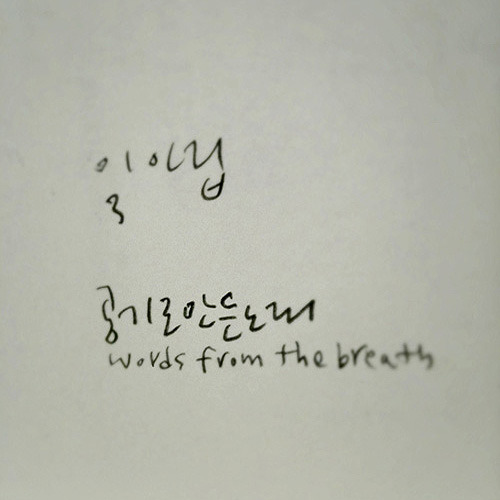 일이립
공기로만든노래
words from the breath